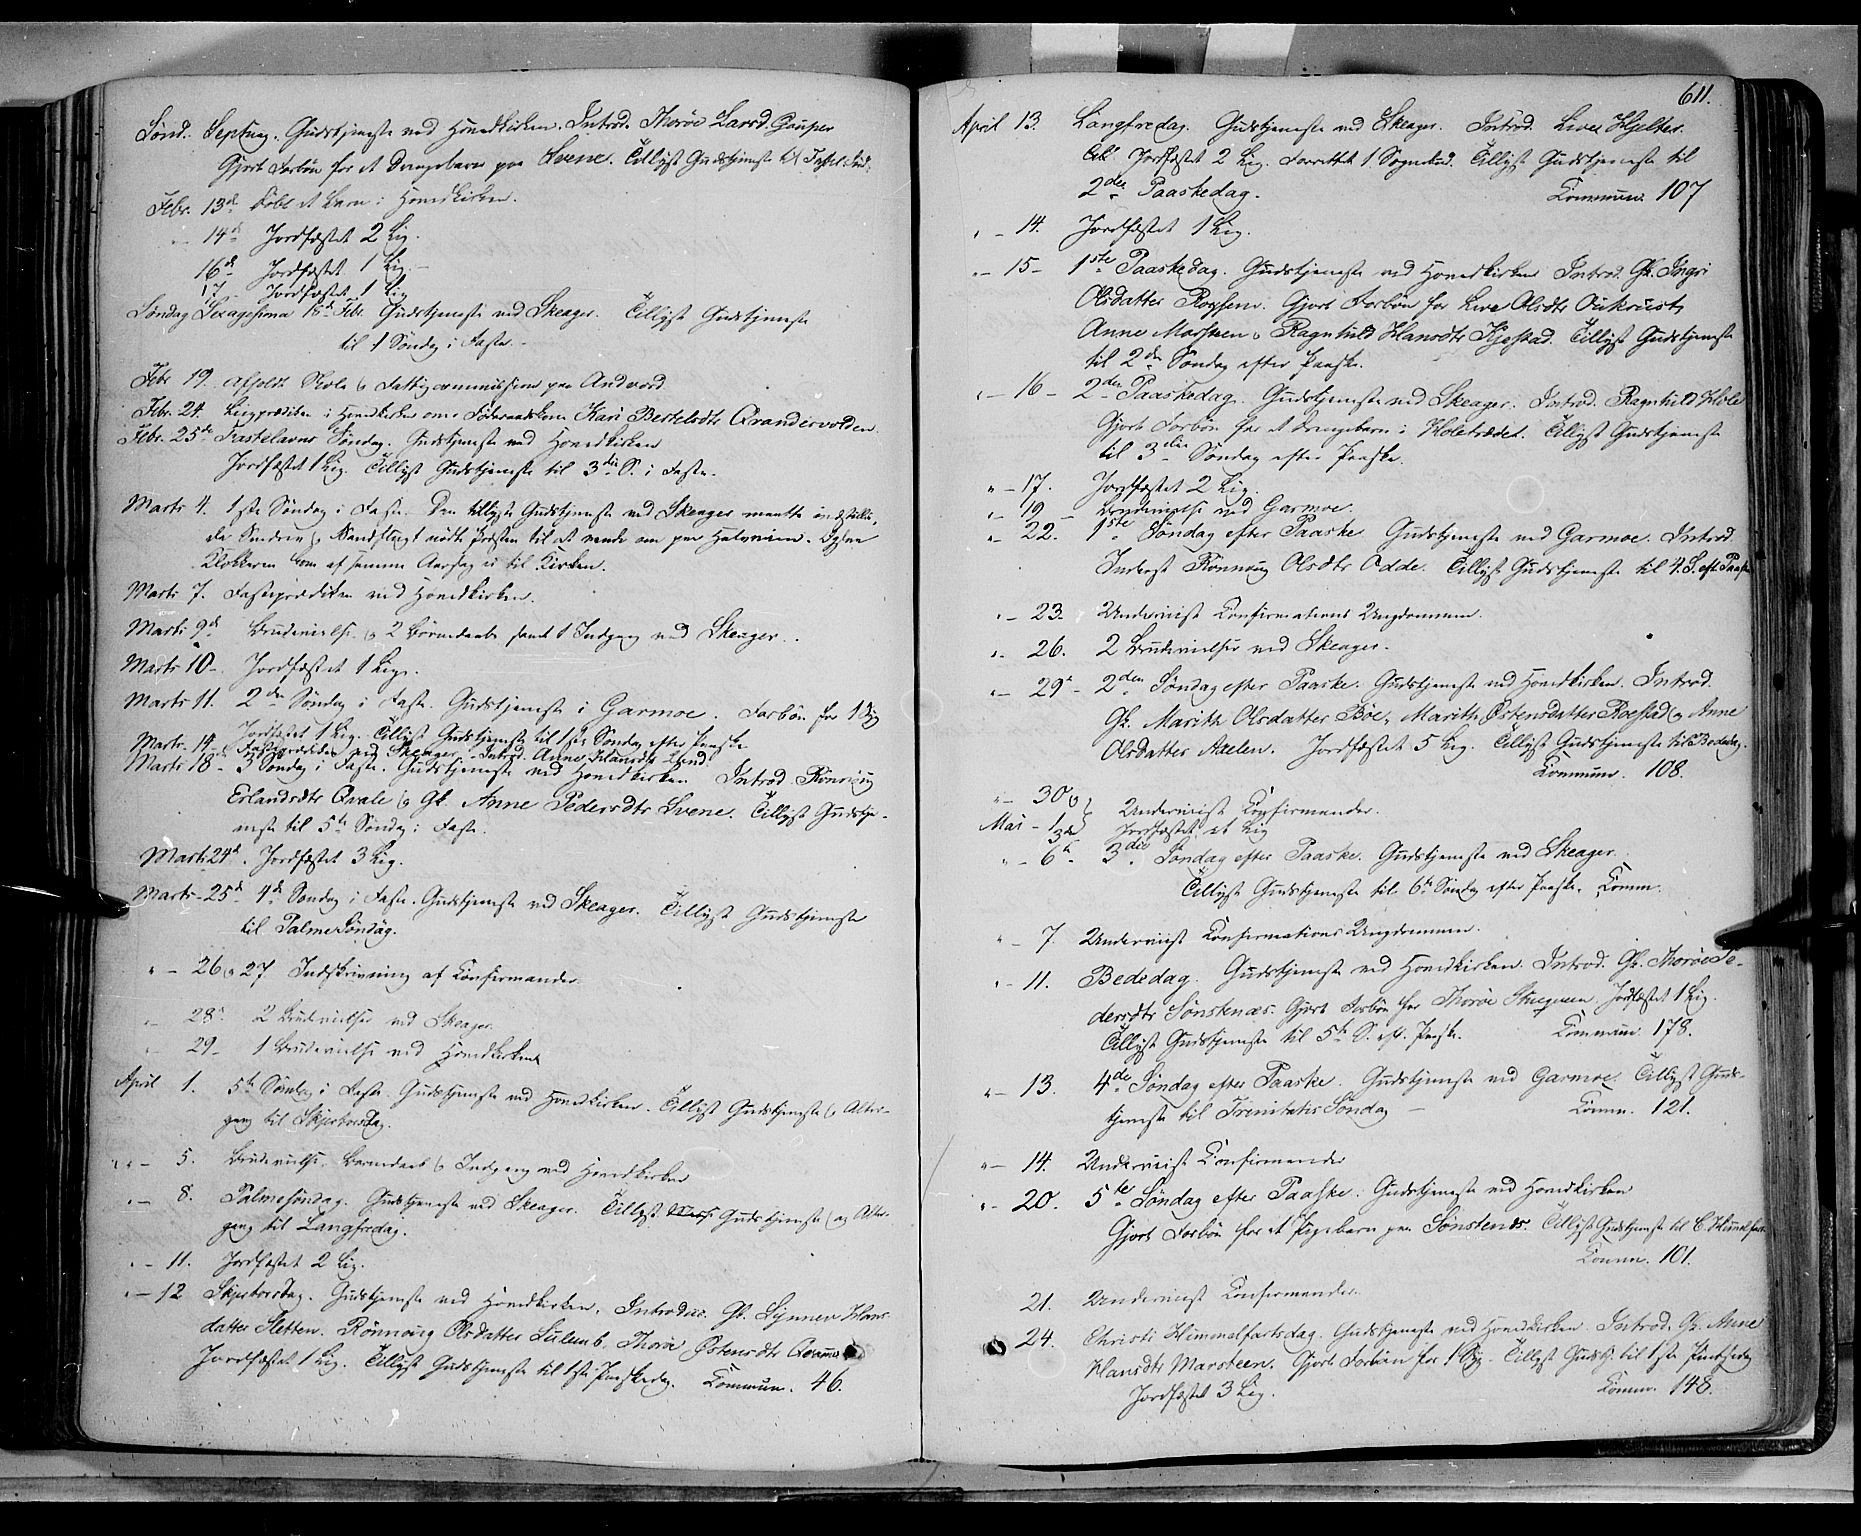 Sönd. Septuag. Gudstjeneste ved Hovedkirken. Introd. Thorøe Larsd. Gaupar
Gjort Forbön for et Drengebarn paa Svene. Tillyst Gudstjeneste til Fastel. Sönd.
Febr. 13de Döbt et Barn i Hovedkirken.
" 14de Jordfæstet 2 Lig.
16de Jordfæstet 1 Lig.
17 Jordfæstet 1 Lig
Söndag Sexagesima 18de Febr. Gudstjeneste ved Skeager. Tillyst Gudstjeneste
til 1 Söndag i Faste.
Febr 19. Afholdt Skole og Fattigcommission paa Andvord
Febr. 24. Ligprædiken i Hovedkirken over Föderaadskone Kari Bertelsdtr Qvandervolden.
Febr. 25de Fastelavns Söndag. Gudstjeneste ved Hovedkirken
Jordfæstet 1 Lig. Tillyst Gudstjeneste til 3die S. i Faste.
Marts 4. 1ste Söndag i Faste. Den tillyste Gudstjeneste ved Skeager maatte indstilles,
da Snedrev og Sandflugt nødte Præsten til at vende om paa
Klokkeren kom af samme Aarsag ei til Kirken.
Marts 7. Fasteprædiken ved Hovedkirken.
Marts 9de Brudevielse og 2 Börnedaab samt 1 Indgang ved Skeager.
Marts 10 - Jordfæstet 1 Lig.
Marts 11. 2den Söndag i Faste. Gudstjeneste i Garmoe. Forbön for 1 Syg
Jordfæstet 1 Lig. Tillyst Gudstjeneste til 1ste Söndag efter Paaske
Marts 14de Fasteprædiken ved Skeager. Introd. Anne Hansdtr
Marts 18 - 3 Söndag i Faste. Gudstjeneste ved Hovedkirken Introd Rönnoug
Erlandsdtr Qvale og Gk. Anne Pedersdtr Svene. Tillyst Gudstje-
neste til 5te Söndag i Faste.
Marts 24de. Jordfæstet 3 Lig.
Marts - 25de 4de Söndag i Faste. Gudstjeneste ved Skeager. Tillyst Gudstjeneste
til Palmesöndag.
" - 26 og 27 Indskrivning af Confirmander
" 28de 2 Brudevielser ved Skeager.
29 - 1 Brudevielse ved Hovedkirken
April 1. 5te Söndag i Faste Gudstjeneste ved Hovedkirken. Tillyst Gudstjeneste og Alter-
gang til Skjertorsdag.
" " - 5. Brudevielse, Barnedaab og Indgang ved Hovedkirken
" - 8. Palmesöndag. Gudstjeneste ved Skeager. Tillyst Gudstjeneste (og Alter-
gang til Langfredag.
" - 11. Jordfæstet 2 Lig.
" - 12 Skjertorsdag. Gudstjeneste ved Hovedkirken. Introduc. Gk. Synnev Hans
datter Sletten. Rönnoug Olsdatter Sulemb, Thora Østensdtr
Jordfæstet 1 Lig. Tillyst Gudstjeneste til 1ste Paaskedag. Commun. 46.
611.
April 13. Langfredag. Gudstjeneste ved Skeager. Introd. Live Hjeltar.
Jordfæstet 2 Lig. Forrettet 1 Sognebud. Tillyst Gudstjeneste til
2den Paaskedag. Commun. 107
" - 14. Jordfæstet 1 Lig.
" - 15 - 1ste Paaskedag. Gudstjeneste ved Hovedkirken Introd. Gk. Ingri
Olsdatter Gjort Forbön for Live Olsdtr
Anne Marsteen og Ragnhild Hansdtr Kjæstad. Tillyst Gudstjeneste
til 2den Söndag efter Paaske.
" - 16 - 2den Paaskedag. Gudstjeneste ved Skeager. Introd. Ragnhild Hole
Gjort Forbön for et Drengebarn i Holetrædet. Tillyst Gudstjeneste
til 3die Söndag efter Paaske.
" - 17. Jordfæstet 2 Lig.
" - 19 - Brudevielse ved Garmoe.
" - 22. 1ste Söndag efter Paaske Gudstjeneste ved Garmoe. Introd.
Rönnoug Olsdtr Odde. Tillyst Gudstjeneste til 4. S. eft. Paaske
" - 23. Underviist Confirmations Ungdommen.
" - 26. 2 Brudevielser ved Skeager.
" - 29de - 2den Söndag efter Paaske. Gudstjeneste ved Hovedkirken. Introd.
Gk. Marith Olsdatter Böe, Marith Østensdatter Roestad og Anne
Olsdatter Aaelen. Jordfæstet 5 Lig. Tillyst Gudstjeneste til Bededag.
Commun. 108.
" - 30 og } Underviist Confirmander.
Mai - 1
3de Jordfæstet et Lig
" - 6te 3die Söndag efter Paaske. Gudstjeneste ved Skeager.
Tillyst Gudstjeneste til 6te Söndag efter Paaske. Comm.
" - 7. Underviist Confirmations Ungdommen.
" - 11. Bededag. Gudstjeneste ved Hovedkirken. Introd. Gk. Thorøe Pe-
dersdtr Sönstenæs. Gjort Forbön for Thorøe Jordfæstet 1 Lig.
Tillyst Gudstjeneste til 5te S. eft. Paaske. Commun. 178.
" - 13. 4de Söndag efter Paaske. Gudstjeneste ved Garmoe. Tillyst Guds-
tjeneste til Trinitatis Söndag - Comm. 121.
" - 14. Underviist Confirmander
" - 20. 5te Söndag efter Paaske. Gudstjeneste ved Hovedkirken
Gjort Forbön for et Pigebarn paa Sönstenæs. Tillyst Gudstjeneste til C. Himmelfart
Comm. 101.
21. Underviist Confirmander.
24. Christi Himmelfartsdag. Gudstjeneste ved Hovedkirken. Introd. Gk. Anne
Hansdtr Marsteen. Gjort Forbön for 1 Syg. Tillyst Gudstj. til 1ste Pintsedag
Jordfæstet 3 Lig. Comm. 148.